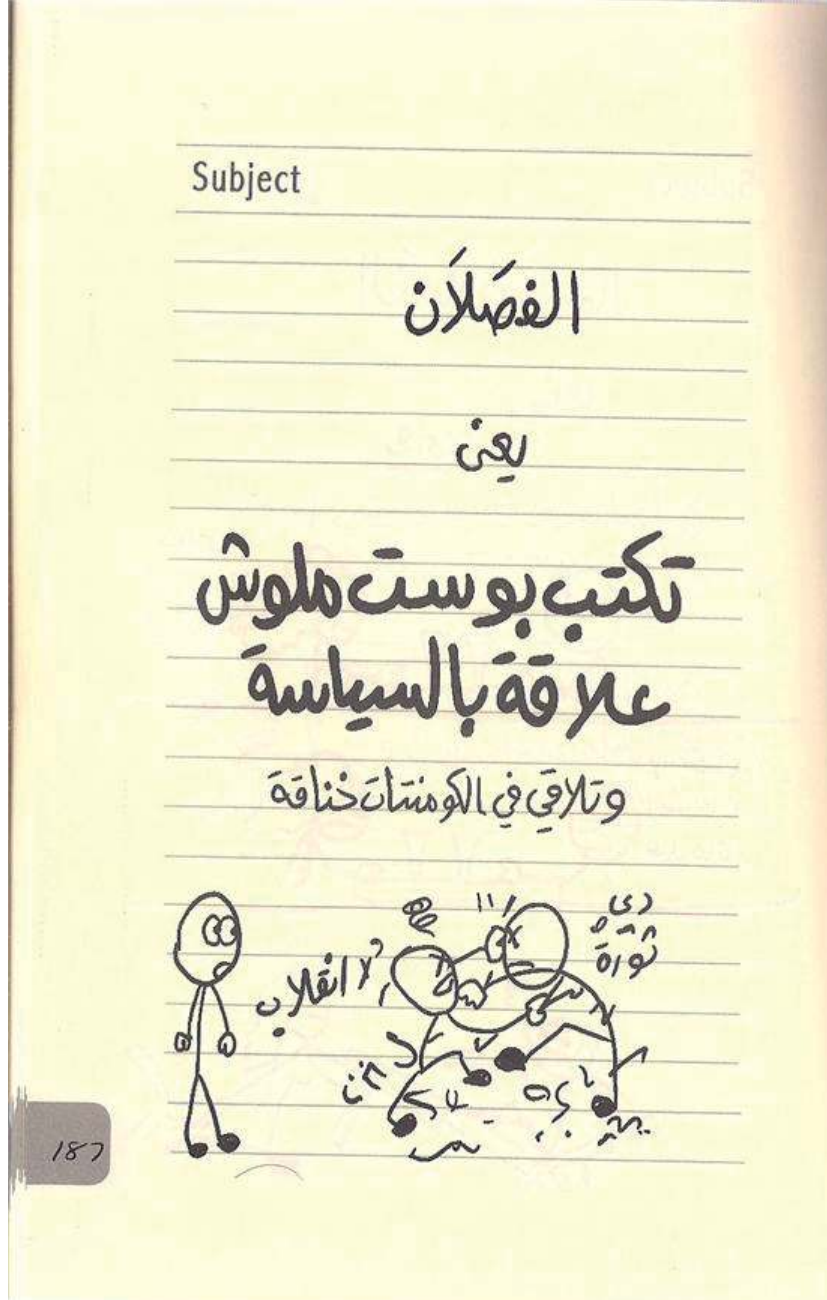 Subject
الفَصَلَان
يعنى
تكتب بوست ملوش
علاقة بالسياسة
وتلاقي في الكومنتات خناقة
دى
ثورة
لا انقلاب
187